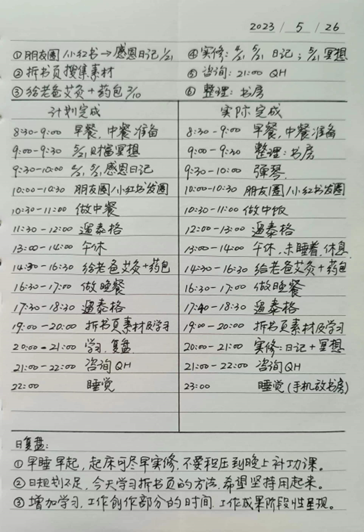 2023 / 5 / 26
①朋友圈/小红书→感恩日记 5/21
④实修: 5/21 日记; 5/21 冥想
②拆书页搜集素材
⑤咨询: 21:00 QH
③给老爸艾灸+药包 3/10
⑥整理: 书房
计划完成
实际完成
8:30-9:00 早餐, 中餐准备
8:30-9:00 早餐, 中餐准备
9:00-9:30 冥想
9:00-9:30 整理: 书房
9:30-10:00 感恩日记
9:30-10:00 弹琴.
10:00-10:30 朋友圈/小红书发圈
10:00-10:30 朋友圈/小红书发圈
10:30-11:00 做中餐
10:30-11:00 做中饭
11:30-12:00 遛泰格
12:00-13:00 遛泰格
13:00-14:00 午休
13:00-14:00 午休, 未睡着, 休息
14:30-16:30 给老爸艾灸+药包
14:30-16:30 给老爸艾灸+药包
16:30-17:00 做晚餐
16:30-17:00 做晚餐
17:30-18:30 遛泰格
17:40-18:30 遛泰格
19:00-20:00 拆书页素材及学习
19:00-20:00 拆书页素材及学习
20:00-21:00 学习, 复盘
20:00-21:00 实修: 日记+冥想
21:00-22:00 咨询QH
21:00-22:00 咨询QH
22:00 睡觉
23:00 睡觉(手机放书房)
日复盘:
①早睡早起, 起床可尽早实修, 不要积压到晚上补功课。
②日规划不足, 今天学习拆书页的方法, 希望坚持用起来。
③增加学习, 工作创作部分的时间, 工作成果阶段性呈现。